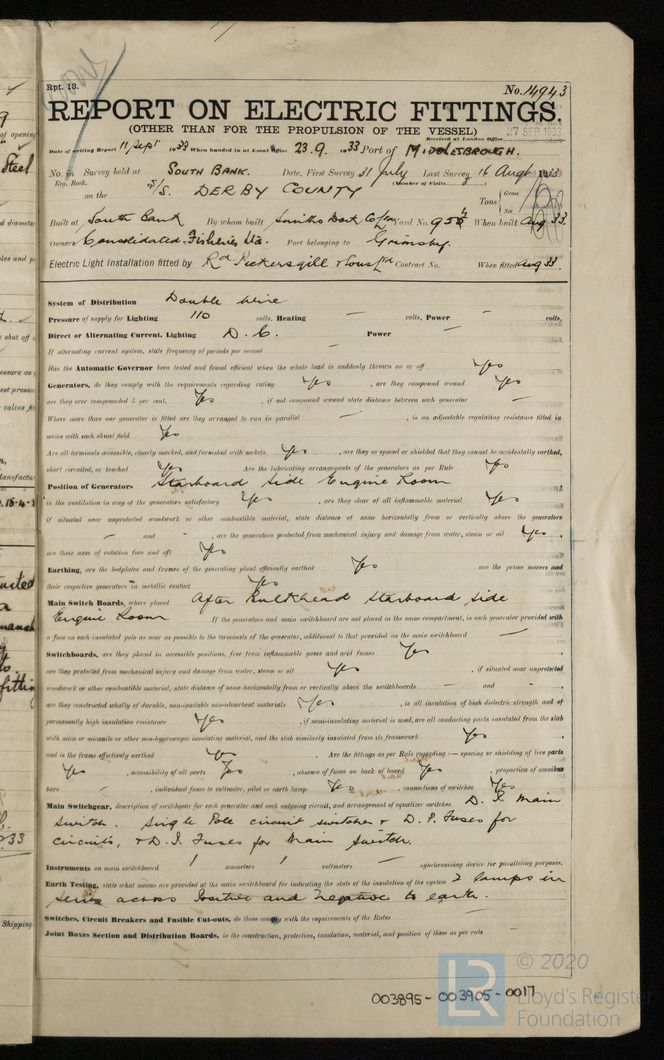 Rpt. 13.
No. 14943
REPORT ON ELECTRIC FITTINGS.
(OTHER THAN FOR THE PROPULSION OF THE VESSEL)
Received at London Office 27 SEP 1933
Date of writing Report 11, Sept 1933 When handed in at Local Office 23.9.1933 Port of MIDDLESBROUGH.
No. in Survey held at SOUTH BANK. Date, First Survey 31 July Last Survey 16 Aug 1933
Reg. Book. (Number of Visits )
on the S/S. DERBY COUNTY Tons Gross Net
Built at South Bank By whom built Smiths Dock Co Ltd Yard No. When built Aug 33.
Owners Consolidated Fisheries Ltd. Port belonging to Grimsby.
Electric Light Installation fitted by Rd Pickersgill & Sons Ltd Contract No. When fitted Aug 33.
System of Distribution Double Wire
Pressure of supply for Lighting 110 volts, Heating — volts, Power — volts,
Direct or Alternating Current, Lighting D.C. Power —
If alternating current system, state frequency of periods per second —
Has the Automatic Governor been tested and found efficient when the whole load is suddenly thrown on or off Yes
Generators, do they comply with the requirements regarding rating Yes , are they compound wound Yes
are they over compounded 5 per cent. Yes , if not compound wound state distance between each generator —
Where more than one generator is fitted are they arranged to run in parallel — , is an adjustable regulating resistance fitted in
series with each shunt field Yes
Are all terminals accessible, clearly marked, and furnished with sockets Yes , are they so spaced or shielded that they cannot be accidentally earthed,
short circuited, or touched Yes Are the lubricating arrangements of the generators as per Rule Yes
Position of Generators Starboard Side Engine Room
is the ventilation in way of the generators satisfactory Yes , are they clear of all inflammable material Yes
if situated near unprotected woodwork or other combustible material, state distance of same horizontally from or vertically above the generators
— and — , are the generators protected from mechanical injury and damage from water, steam or oil Yes ,
are their axes of rotation fore and aft Yes
Earthing, are the bedplates and frames of the generating plant efficiently earthed Yes are the prime movers and
their respective generators in metallic contact Yes
Main Switch Boards, where placed After Bulkhead Starboard Side
Engine Room If the generators and main switchboard are not placed in the same compartment, is each generator provided with
a fuse on each insulated pole as near as possible to the terminals of the generator, additional to that provided on the main switchboard —
Switchboards, are they placed in accessible positions, free from inflammable gases and acid fumes Yes ,
are they protected from mechanical injury and damage from water, steam or oil Yes , if situated near unprotected
woodwork or other combustible material, state distance of same horizontally from or vertically above the switchboards — and — ,
are they constructed wholly of durable, non-ignitable non-absorbent materials Yes , is all insulation of high dielectric strength and of
permanently high insulation resistance Yes , if semi-insulating material is used, are all conducting parts insulated from the slab
with mica or micanite or other non-hygroscopic insulating material, and the slab similarly insulated from its framework Yes
and is the frame effectively earthed Yes . Are the fittings as per Rule regarding :— spacing or shielding of live parts
Yes , accessibility of all parts Yes , absence of fuses on back of board Yes , proportion of omnibus
bars — , individual fuses to voltmeter, pilot or earth lamp Yes , connections of switches Yes
Main Switchgear, description of switchgear for each generator and each outgoing circuit, and arrangement of equalizer switches D.P. Main
Switch. Single Pole circuit switches & D.P. Fuses for
Circuits, & D.P. Fuses for Main Switch.
Instruments on main switchboard 1 ammeters 1 voltmeters — synchronising device for paralleling purposes.
Earth Testing, state what means are provided at the main switchboard for indicating the state of the insulation of the system 2 lamps in
series across Positive and Negative to earth.
Switches, Circuit Breakers and Fusible Cut-outs, do these comply with the requirements of the Rules —
Joint Boxes Section and Distribution Boards, is the construction, protection, insulation, material, and position of these as per rule —
© 2020
Lloyd's Register
Foundation
LR
003895 - 003905 - 0017